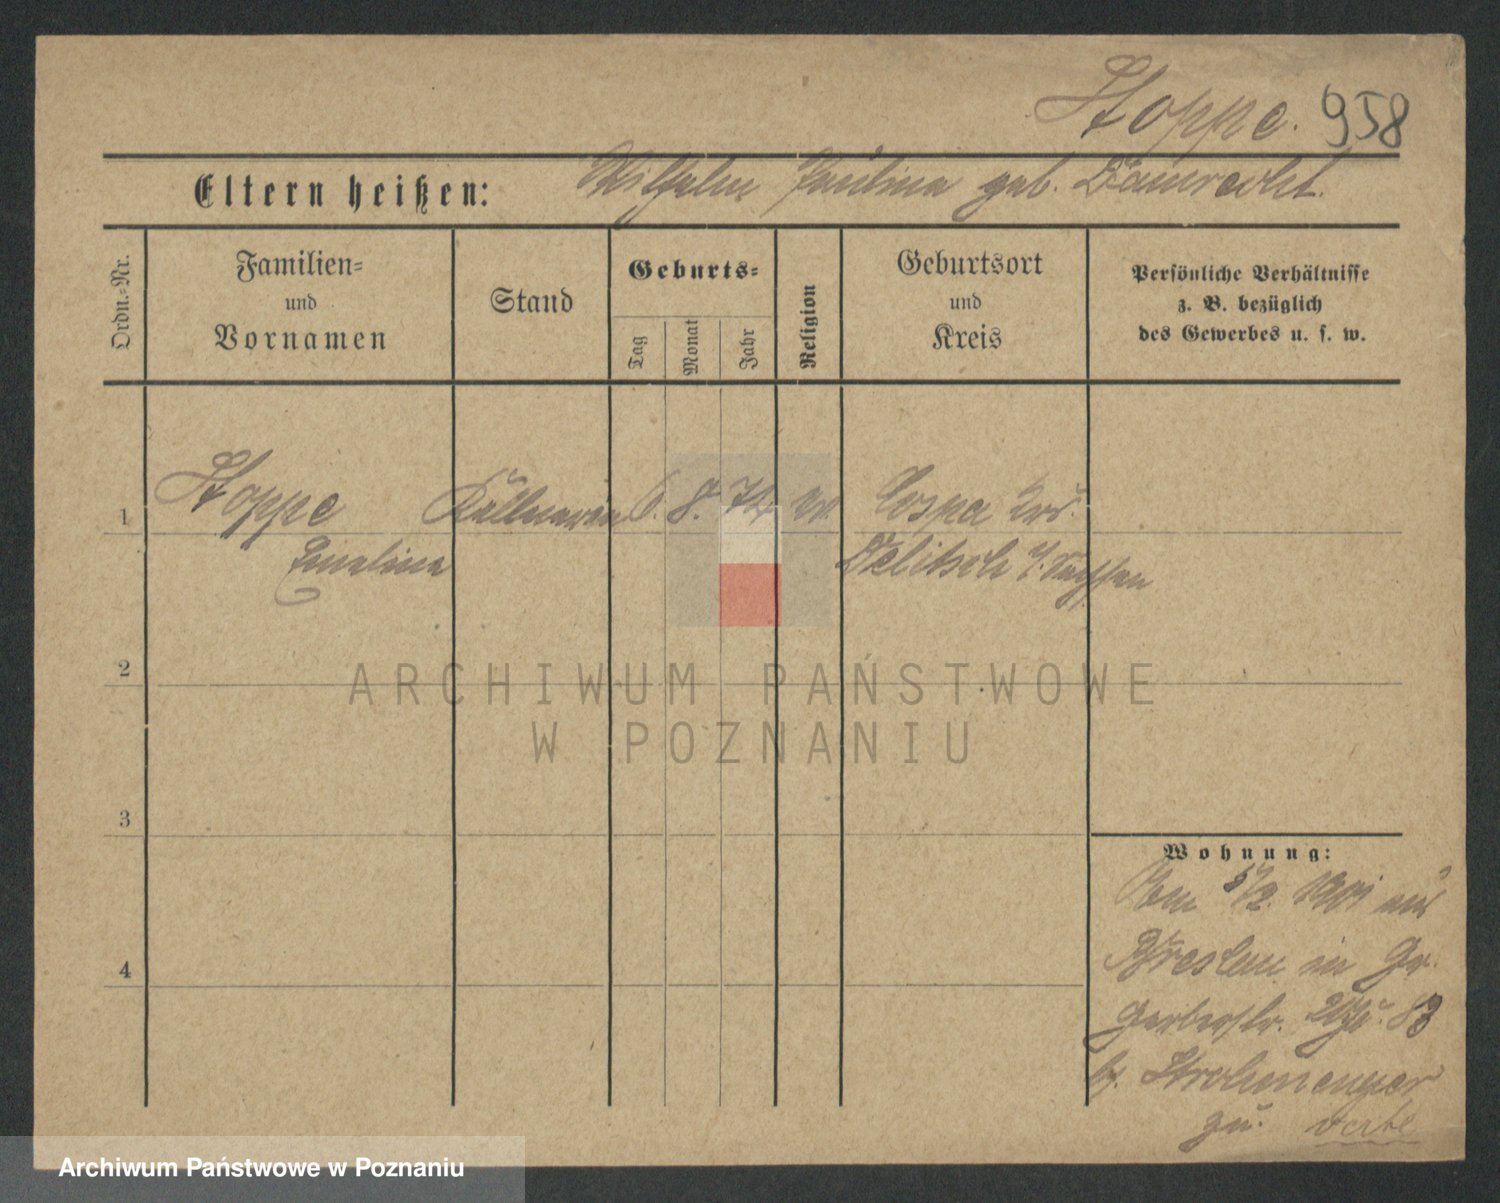 Hoppe. 958
Eltern heißen: Wilhelm Paulina geb.
Ordn.=Nr.
Familien=
und
Vornamen
Stand
Geburts=
Tag
Monat
Jahr
Religion
Geburtsort
und
Kreis
Persönliche Verhältnisse
z. B. bezüglich
des Gewerbes u. s. w.
1
Hoppe Kellnerin 6. 8. 74 Cospa Krs.
Emaline Delitsch
2
3
4
Wohnung:
1901 aus
Breslau in Gr.
Gerberstr.
b. Strohmenger
zu. verte
ARCHIWUM PAŃSTWOWE
W POZNANIU
Archiwum Państwowe w Poznaniu